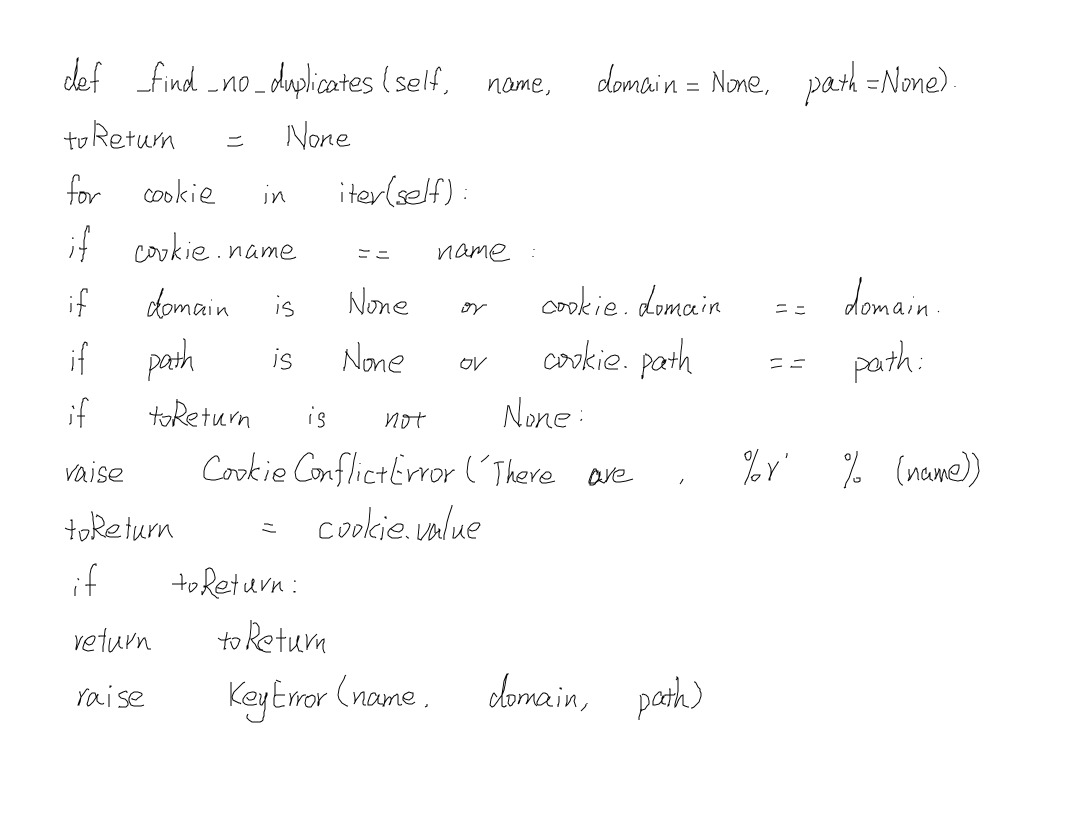 def _find_no_duplicates(self, name, domain = None, path =None).
toReturn = None
for cookie in iter(self):
if cookie.name == name :
if domain is None or cookie.domain == domain.
if path is None or cookie.path == path:
if toReturn is not None:
raise CookieConflictError('There are , %r' % (name))
toReturn = cookie.value
if toReturn:
return toReturn
raise KeyError(name, domain, path)